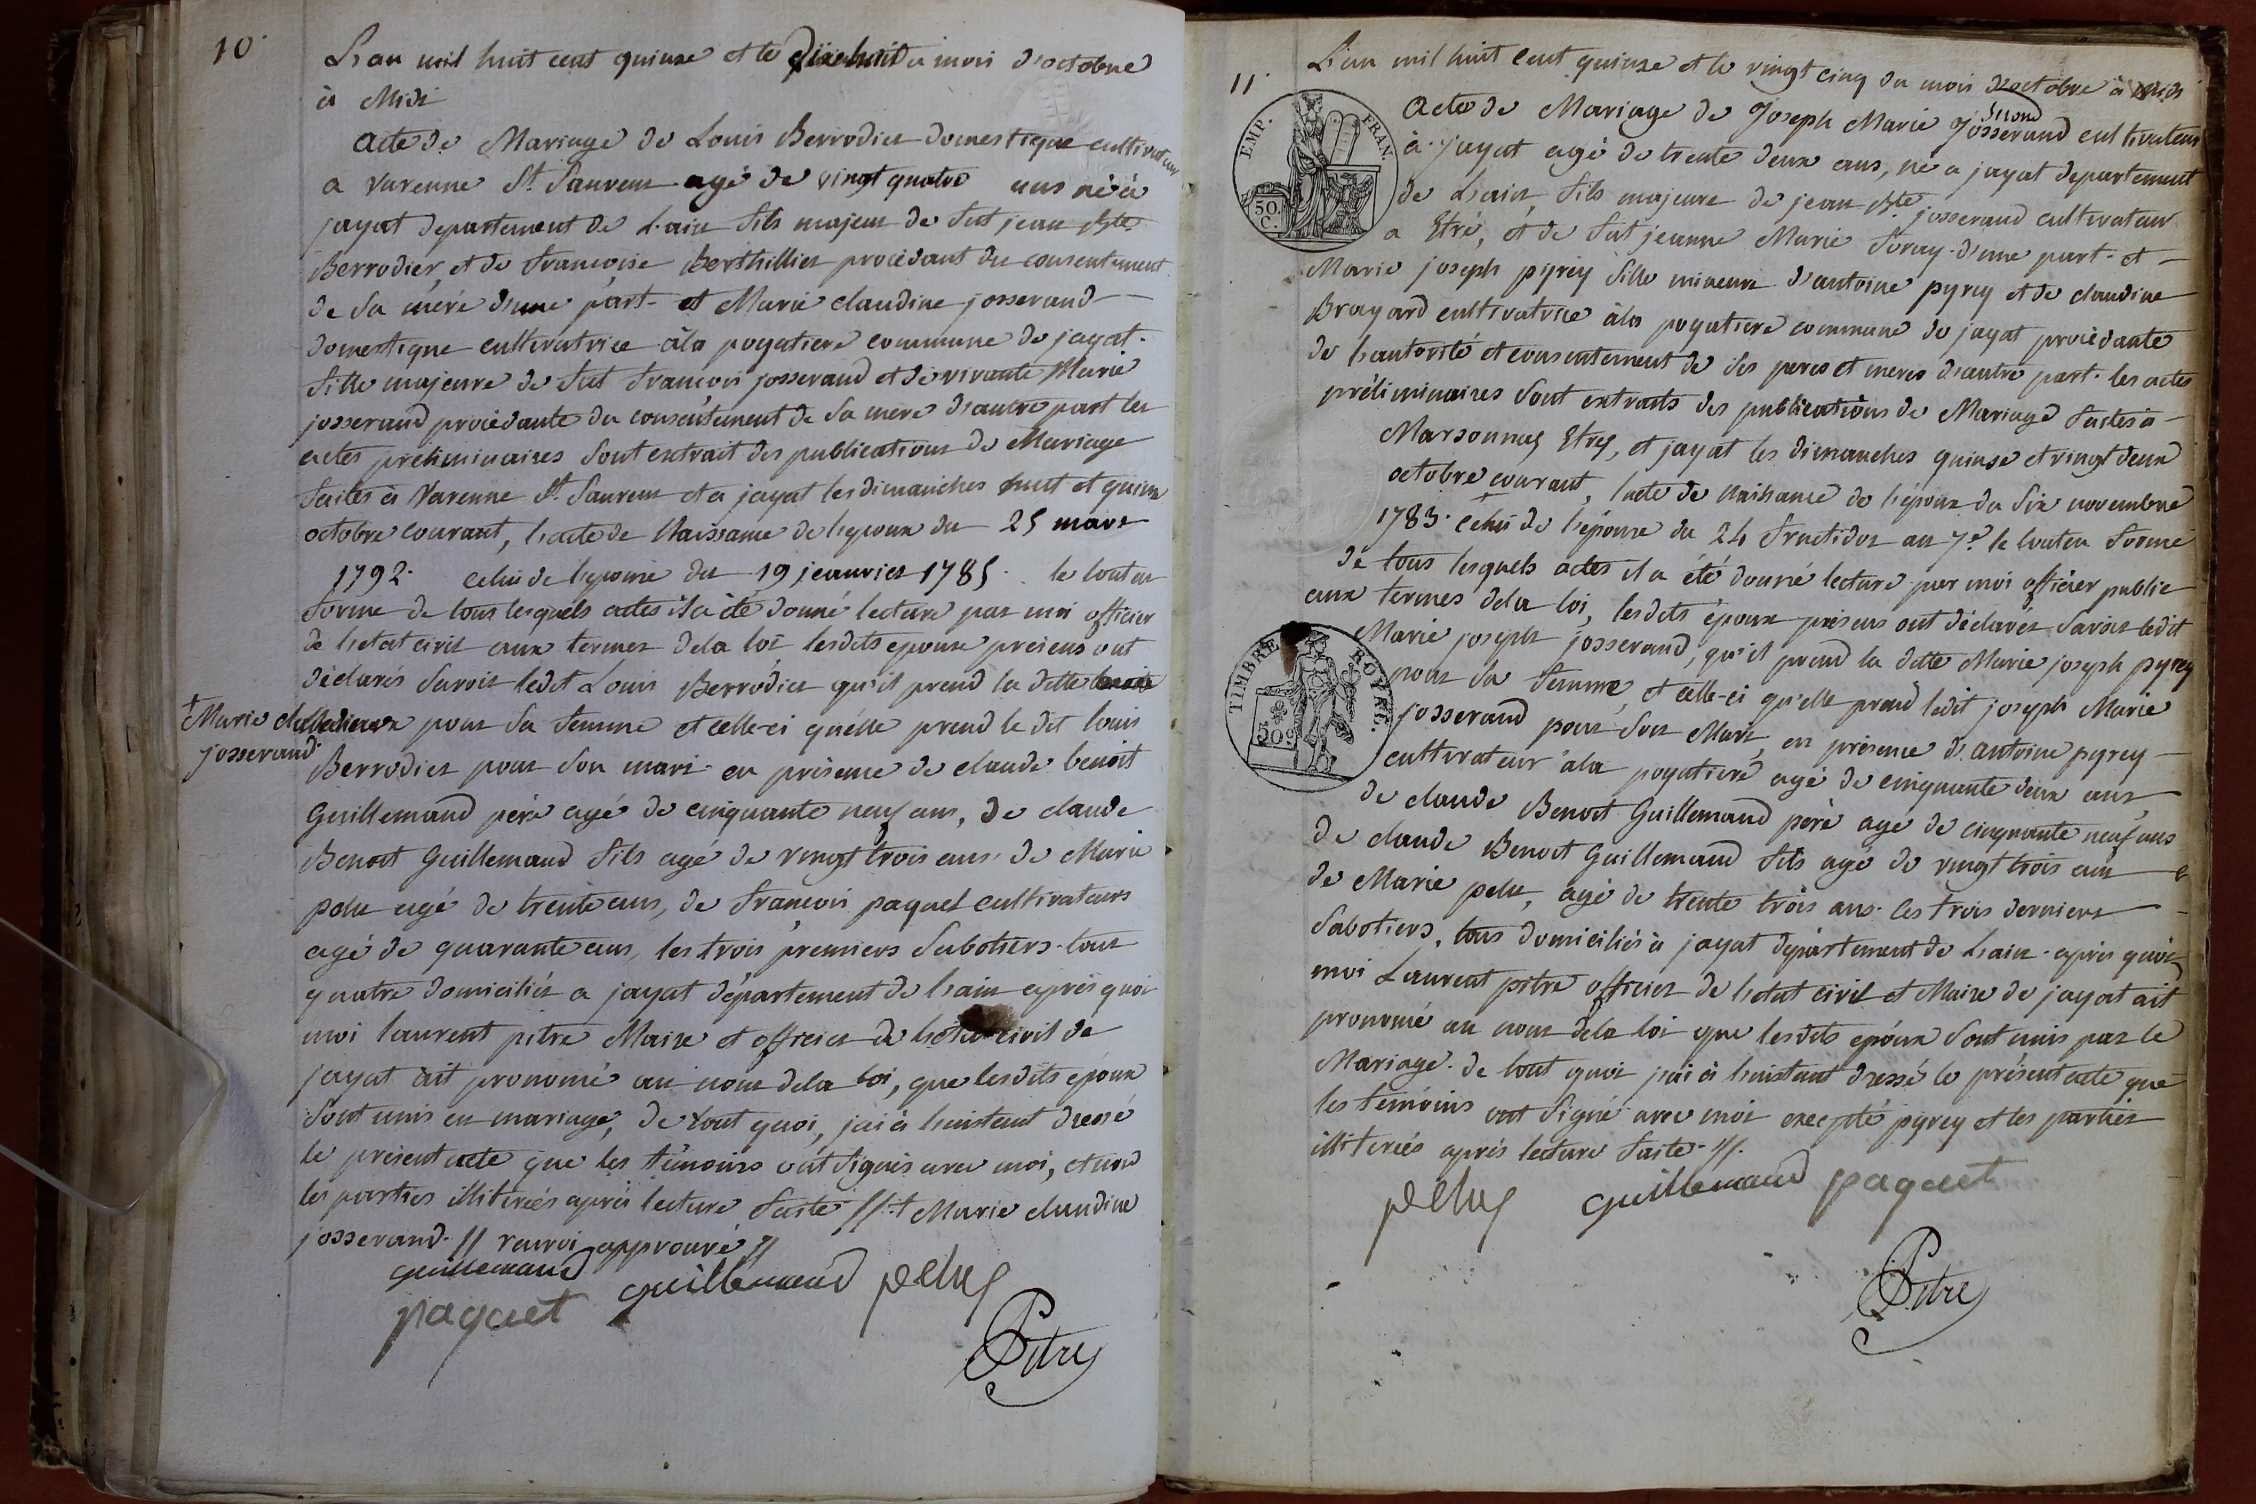 10.
L'an mil huit cent quinze et le dixehuit du mois d'octobre
à Midi
acte de Mariage de Louis Berrodier domestique cultivateur
a varenne St. Sauveur agé de vingt quatre ans né à
jayat departement de L'ain fils majeur de fut jean Bte
Berrodier, et de francoise Berthillier procèdant du consentement
de sa mére d'une part- et Marie claudine josserand
domestique cultivatrice àla poyatiere commune de jayat.
fille majeure de fut francois josserand et de vivante Marie
josserand procèdante du consentement de sa mere d'autre part les
actes preliminaires sont extrait des publications de Mariage
faites à Varenne St. Sauveur et a jayat les dimanches huit et quinze
octobre courant, l'acte de Naissance de l'epoux du 25 mars
1792. celui de l'epouse du 19 jeanvier 1785. le tout en
forme de tous lesquels actes il a été donné lecture par moi officier
de l'etat civil aux termes dela loi lesdits epoux presens ont
déclarés savoir ledit Louis Berrodier qu'il prend la ditte
+ Marie claudine
josserand.
pour sa femme et celle-ci quélle prend le dit louis
Berrodier pour son mari. en présence de claude benoit
Guillemaud père agé de cinquante neuf ans, de claude
Benoit Guillemaud fils agé de vingt trois ans. de Marie
pelu agé de trente ans, de francois paquet cultivateurs
agé de quarante ans, les trois premiers sabotiers. tous
quatre domiciliés a jayat département de l'ain après quoi
moi laurent pitre Maire et officier de l'etat civil de
jayat ait prononcé au nom dela loi, que lesdits epoux
sont unis en mariage, de tout quoi, jai à linstant dressé
le présent acte que les témoins ont signés avec moi, et non
les parties illiterées après lecture faite //. + Marie claudine
josserand. // renvoi approuvé //
guillemaud guillemaud pelus
paquet
Pitre
11.
L'an mil huit cent quinze et le vingt cinq du mois d'octobre à midi
EMP. FRAN.
50. C.
acte de Mariage de Joseph Marie Josserand cultivateur
à jayat agé de trente deux ans, né a jayat departement
de L'ain, fils majeure de jean Bte josserand cultivateur
a Etré, et de fut jeanne Marie foray d'une part- et
Marie joseph pyrey fille mineure d'antoine pyrey et de claudine
Brayard cultivatrice àla poyatiere commune de jayat procèdante
de l'autorité et consentement de ses peres et meres d'autre part. les actes
préliminaires sont extraits des publications de Mariage faites à
Marsonnas Etrés, et jayat les dimanches quinze et vingt deux
octobre courant, l'acte de Naissance de l'époux du six novembre
1783. celui de l'épouse du 24 fructidor an 7e. le tout en forme
de tous lesquels actes il a été donné lecture par moi officier public
aux termes dela loi, lesdits époux présens ont déclarés savoir ledit
TIMBRE ROYAL.
50c.
Marie joseph josserand, qu'il prend la ditte Marie joseph pyrey
pour sa femme, et celle-ci qu'elle prend ledit joseph Marie
josserand pour son Mari, en présence d'antoine pyrey
cultivateur àla poyatiere agé de cinquante deux ans
de claude Benoit Guillemaud père agé de cinquante neuf ans
de claude Benoit Guillemaud fils agé de vingt trois ans et
de Marie pelu, agé de trente trois ans. les trois derniers
sabotiers, tous domiciliés à jayat département de L'ain. après quoi
moi Laurent pitre officier de l'etat civil et Maire de jayat ait
prononcé au nom dela loi que lesdits epoux sont unis par le
Mariage. de tout quoi jai à linstant dressé le présent acte que
les témoins ont signé avec moi excepté pyrey et les parties
illiterées après lecture faite. //.
pelus guillemaud paquet
Pitre